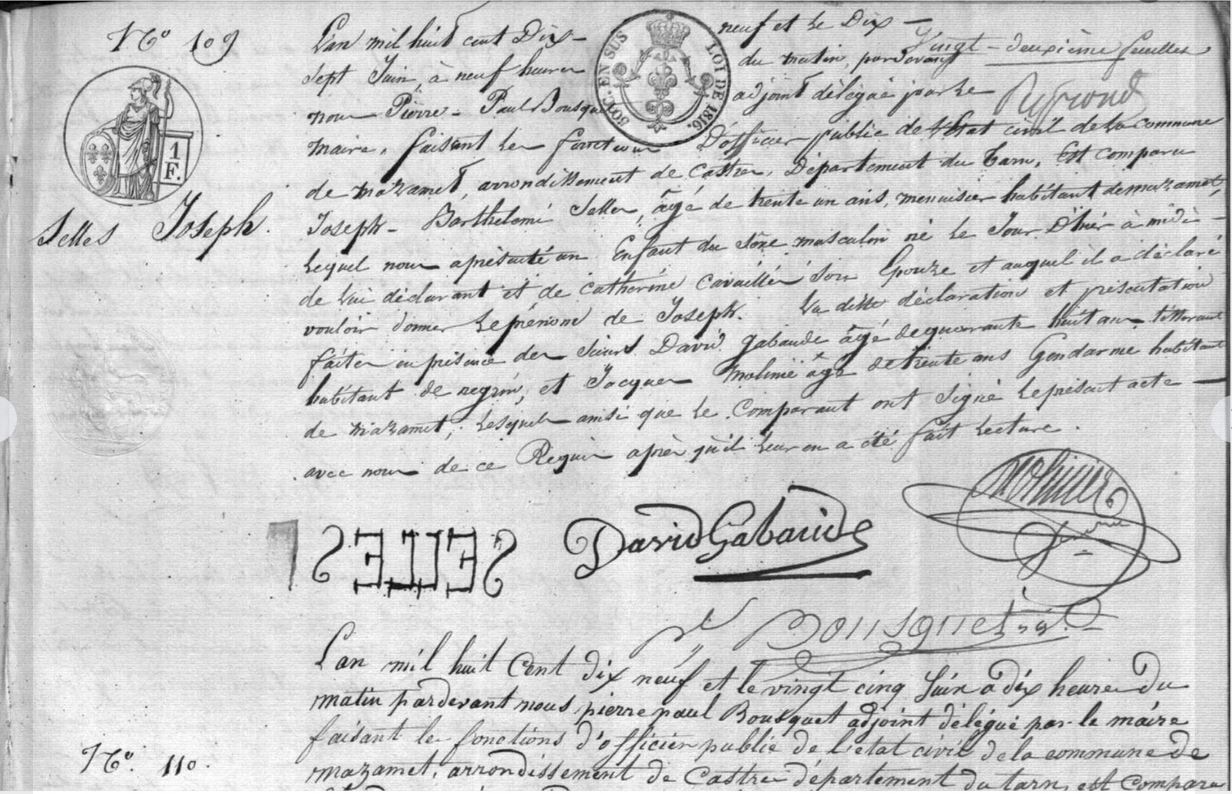 N° 109
L'an mil huit cent Dix- neuf et le Dix -
Vingt-deuxième feuillet
sept Juin, à neuf heures du matin, pardevant
nous Pierre- Paul Bousquet adjoint délégué par le
maire, faisant les fonctions D'officier public de l'État civil de la commune
de mazamet, arrondissement de Castres, Département du Tarn, Est comparu
Joseph- Barthelemi Selles, âgé de trente un ans, menuisier habitant de mazamet,
Lequel nous a présenté un Enfant du sexe masculin né le Jour D'hier à midi -
de lui déclarant et de catherine cavaillés son Epouze et auquel il a déclaré
vouloir donner le prénom de Joseph. La dite déclaration et présentation
faites en présence des Sieurs David gabaude âgé de quarante huit ans
habitant de negrin, et Jacques molinié âgé de trente ans Gendarme habitant
de mazamet, Lesquels ainsi que le Comparant ont Signé le présent acte -
avec nous de ce Requis après qu'il leur en a été fait Lecture.
BOC. EN SUS LOI DE 1816.
1 F.
Selles Joseph.
SELLES
David Gabaude
Molinier
Bousquet
L'an mil huit Cent dix neuf et le vingt cinq Juin a dix heures du
matin pardevant nous pierre paul Bousquet adjoint délégué par le maire
faisant les fonctions d'officier public de l'état civil de la commune de
N°. 110.
mazamet, arrondissement de Castres département du tarn, est Comparu